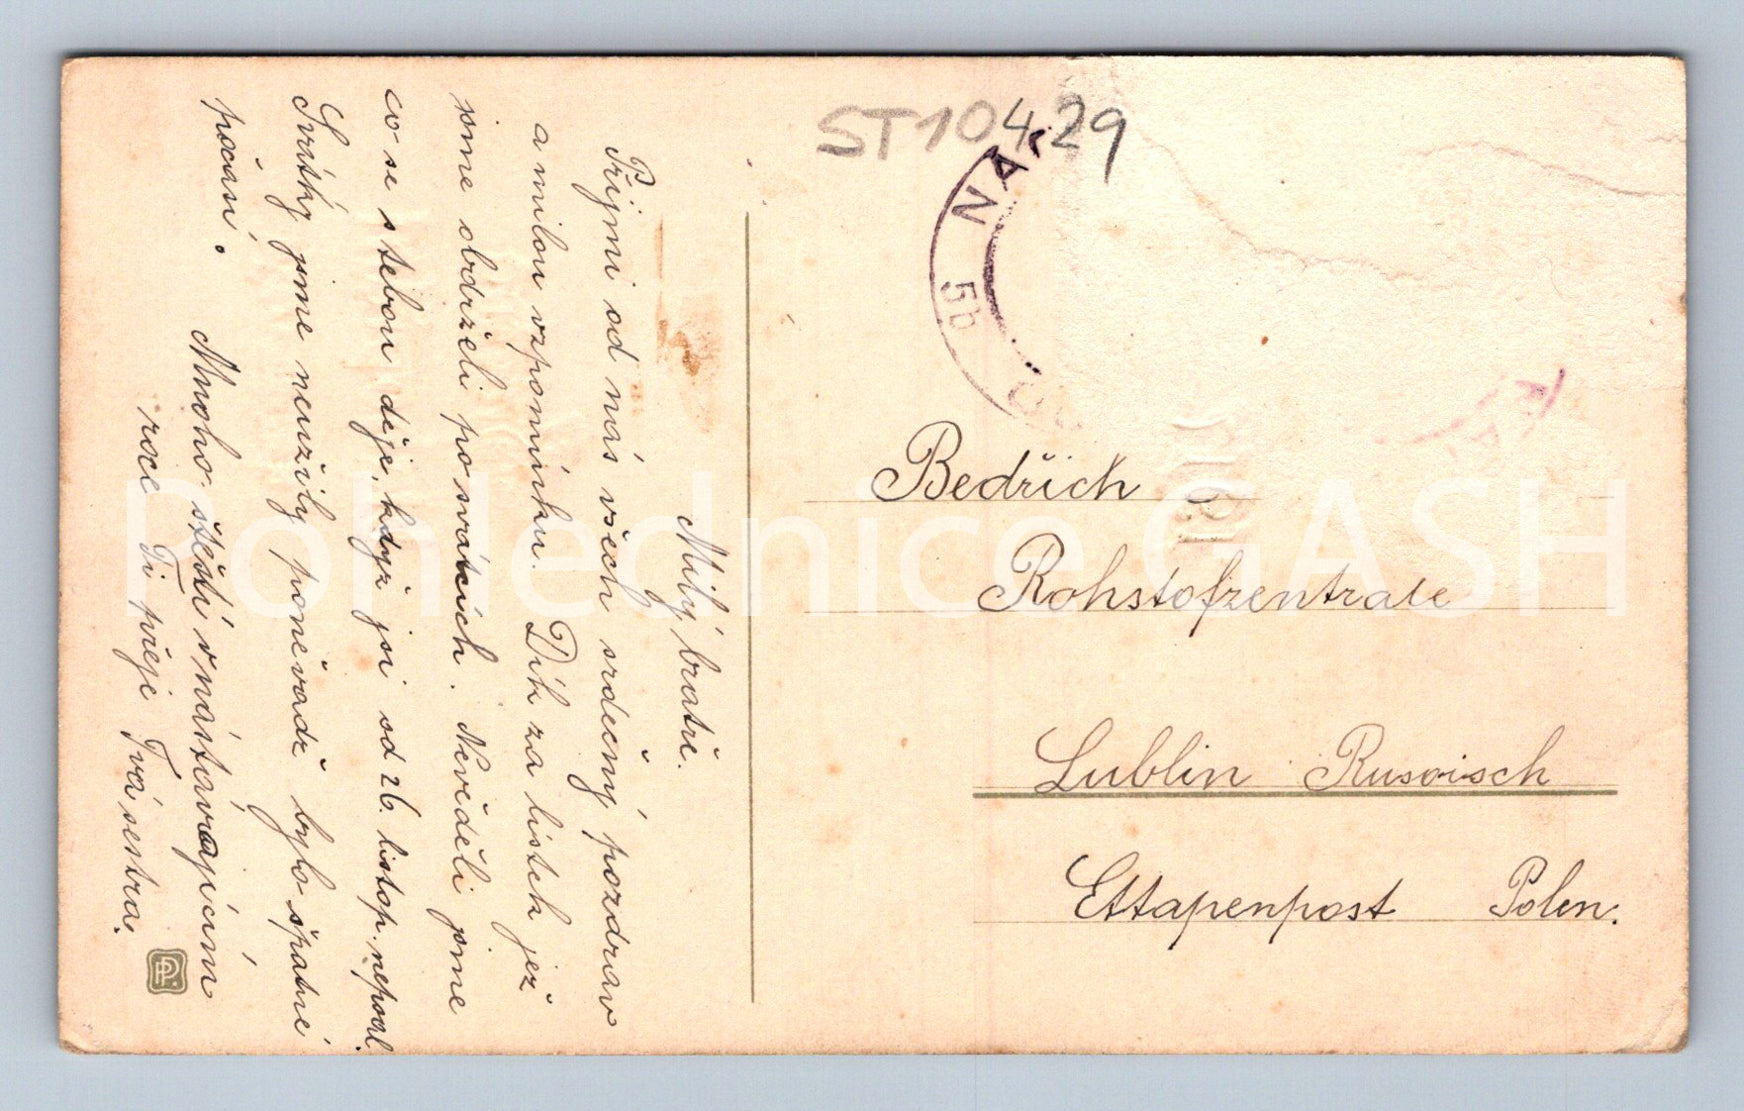 ST10429
NA
5b
Milý bratře.
Přijmi od nás všech srdečný pozdrav
a milou vzpomínku. Dík za lístek jež
sme obdrželi po svátcích. Nevěděli jsme
co se s tebou děje, když jsi od 26. listop. nepsal.
Svátky jsme neužily poněvadž bylo špatné
počasí.
Mnoho štěstí v nastávajícím
roce Ti přeje Tvá sestra.
PP.
Bedřich
Rohstofzentrale
Lublin Rusoisch
Ettapenpost Polen.
Pohlednice GASH